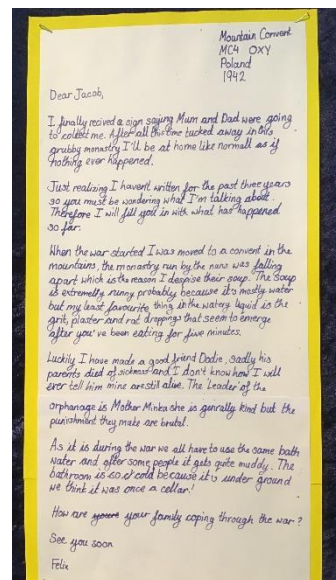 Mountain Convent
MC4 OXY
Poland
1942
Dear Jacob,
I finally recived a sign saying Mum and Dad were going
to collect me. After all this time tucked away in this
grubby monastry I'll be at home like normall as if
nothing ever happened.
Just realizing I havent written for the past three years
so you must be wondering what I'm talking about.
Therefore I will fill you in with what has happened
so far.
When the war started I was moved to a convent in the
mountains, the monastry run by the nuns was falling
apart which is the reason I despise their soup. The soup
is extremelly runny probably because it's mostly water
but my least favourite thing in the watery liquid is the
grit, plaster and rat droppings that seem to emerge
after you've been eating for five minutes.
Luckily I have made a good friend Dodie, sadly his
parents died of sickness and I don't know how I will
ever tell him mine are still alive. The leader of the
orphanage is Mother Minka she is genrally kind but the
punishment they make are brutal.
As it is during the war we all have to use the same bath
water and after some people it gets quite muddy. The
bathroom is so cold because it's under ground
we think it was once a cellar!
How are your family coping through the war?
See you soon
Felix